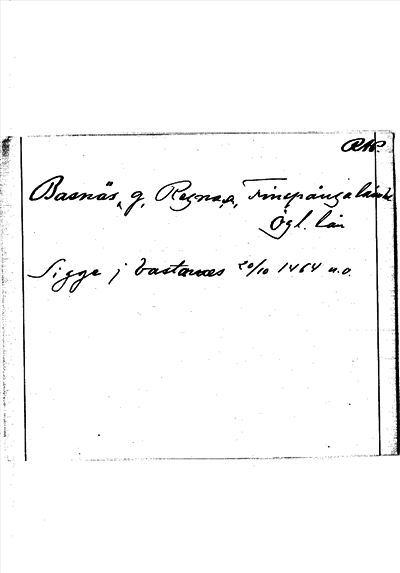 RAP.
Basnäs, g, Regna sn, Finspångaläns hd
Ögl. län
Sigge j bastanæs 20/10 1464 u.o.